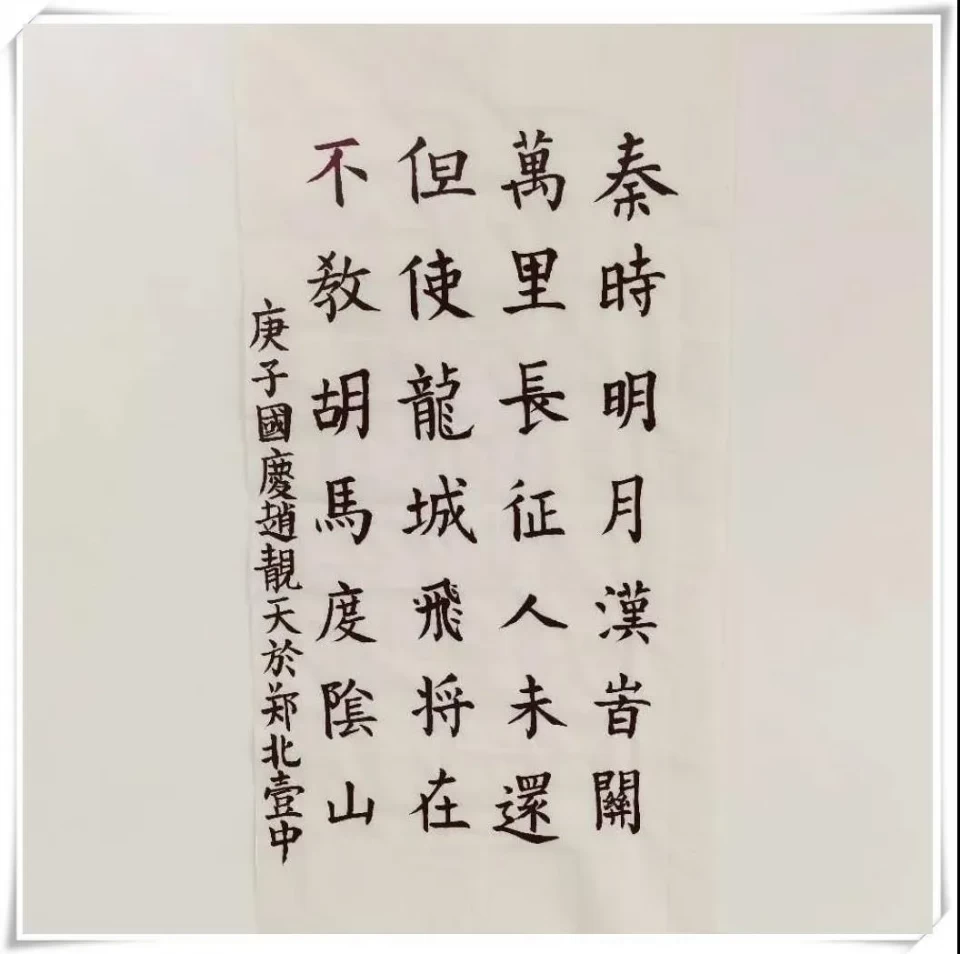 秦時明月漢旹關
萬里長征人未還
但使龍城飛将在
不教胡馬度陰山
庚子國慶趙靚天於郑北壹中